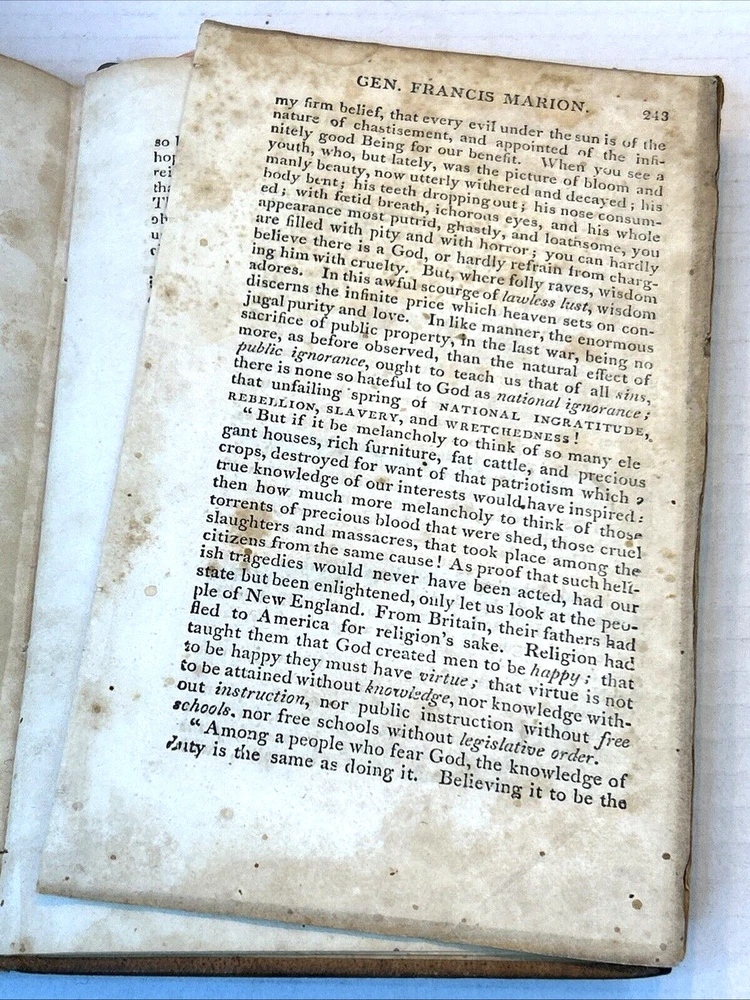 GEN. FRANCIS MARION. 243
my firm belief, that every evil under the sun is of the
nature of chastisement, and appointed of the infi-
nitely good Being for our benefit. When you see a
youth, who, but lately, was the picture of bloom and
manly beauty, now utterly withered and decayed; his
body bent; his teeth dropping out; his nose consum-
ed; with fœtid breath, ichorous eyes, and his whole
appearance most putrid, ghastly, and loathsome, you
are filled with pity and with horror; you can hardly
believe there is a God, or hardly refrain from charg-
ing him with cruelty. But, where folly raves, wisdom
adores. In this awful scourge of lawless lust, wisdom
discerns the infinite price which heaven sets on con-
jugal purity and love. In like manner, the enormous
sacrifice of public property, in the last war, being no
more, as before observed, than the natural effect of
public ignorance, ought to teach us that of all sins,
there is none so hateful to God as national ignorance;
that unfailing spring of NATIONAL INGRATITUDE,
REBELLION, SLAVERY, and WRETCHEDNESS!
"But if it be melancholy to think of so many ele
gant houses, rich furniture, fat cattle, and precious
crops, destroyed for want of that patriotism which a
true knowledge of our interests would have inspired:
then how much more melancholy to think of those
torrents of precious blood that were shed, those cruel
slaughters and massacres, that took place among the
citizens from the same cause! As proof that such hell-
ish tragedies would never have been acted, had our
state but been enlightened, only let us look at the peo-
ple of New England. From Britain, their fathers had
fled to America for religion's sake. Religion had
taught them that God created men to be happy; that
to be happy they must have virtue; that virtue is not
to be attained without knowledge, nor knowledge with-
out instruction, nor public instruction without free
schools, nor free schools without legislative order.
"Among a people who fear God, the knowledge of
duty is the same as doing it. Believing it to be the